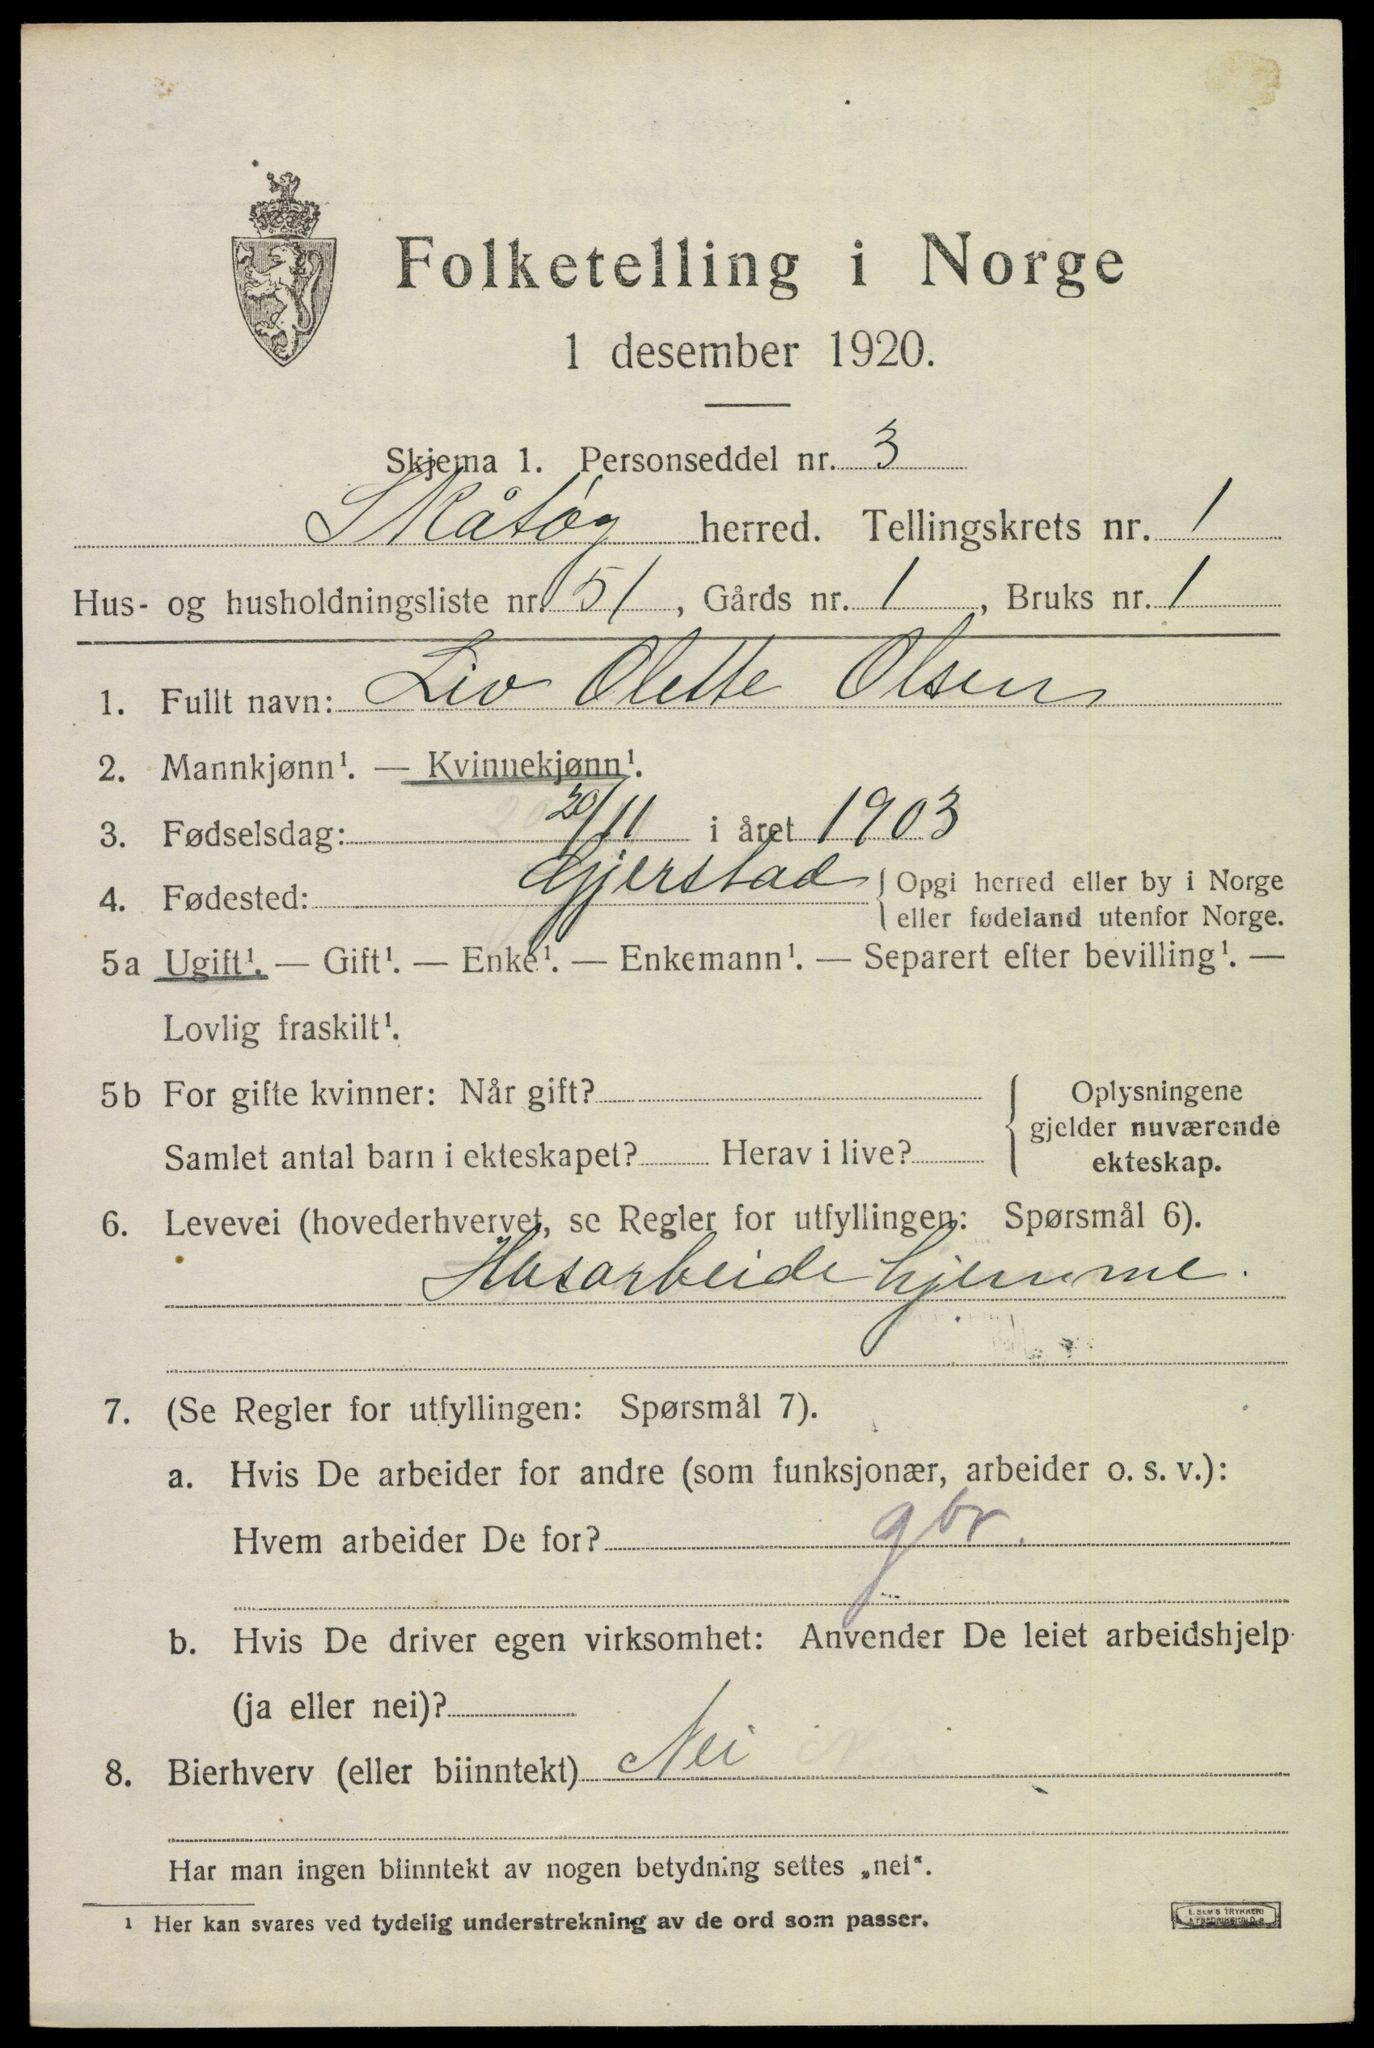 Folketelling i Norge
1 desember 1920.
Skjema 1. Personseddel nr. 3
Skåtøy herred. Tellingskrets nr. 1
Hus- og husholdningsliste nr. 51, Gårds nr. 1, Bruks nr. 1
1. Fullt navn: Liv Olette Olsen
2. Mannkjønn¹. — Kvinnekjønn¹.
3. Fødselsdag: 20/11 i året 1903
4. Fødested: Gjerstad { Opgi herred eller by i Norge
eller fødeland utenfor Norge.
5a Ugift¹. — Gift¹. — Enke¹. — Enkemann¹. — Separert efter bevilling¹. —
Lovlig fraskilt¹.
5b For gifte kvinner: Når gift? { Oplysningene
gjelder nuværende
Samlet antal barn i ekteskapet? Herav i live? ekteskap.
6. Levevei (hovederhvervet, se Regler for utfyllingen: Spørsmål 6).
Husarbeide hjemme.
7. (Se Regler for utfyllingen: Spørsmål 7).
a. Hvis De arbeider for andre (som funksjonær, arbeider o. s. v.):
Hvem arbeider De for? gbr.
b. Hvis De driver egen virksomhet: Anvender De leiet arbeidshjelp
(ja eller nei)?
8. Bierhverv (eller biinntekt) Nei
Har man ingen biinntekt av nogen betydning settes „nei“.
¹ Her kan svares ved tydelig understrekning av de ord som passer.
E. SEM'S TRYKKERI
FREDRIKSHALD